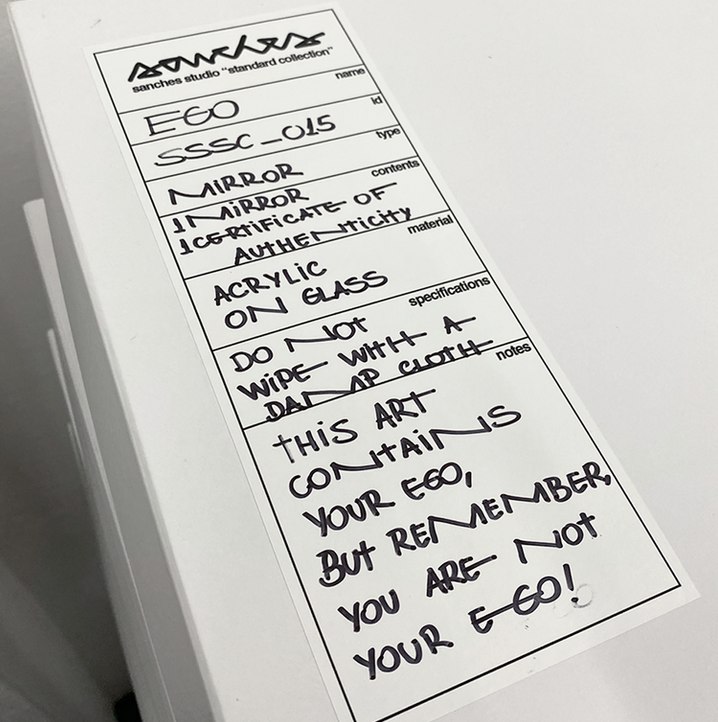 sanches
sanches studio "standard collection"
name
EGO
id
SSSC_015
type
MIRROR
contents
1 MIRROR
1 CERTIFICATE OF
AUTHENTICITY
material
ACRYLIC
ON GLASS
specifications
DO NOT
WIPE WITH A
DAMP CLOTH
notes
THIS ART
CONTAINS
YOUR EGO,
BUT REMEMBER,
YOU ARE NOT
YOUR EGO!